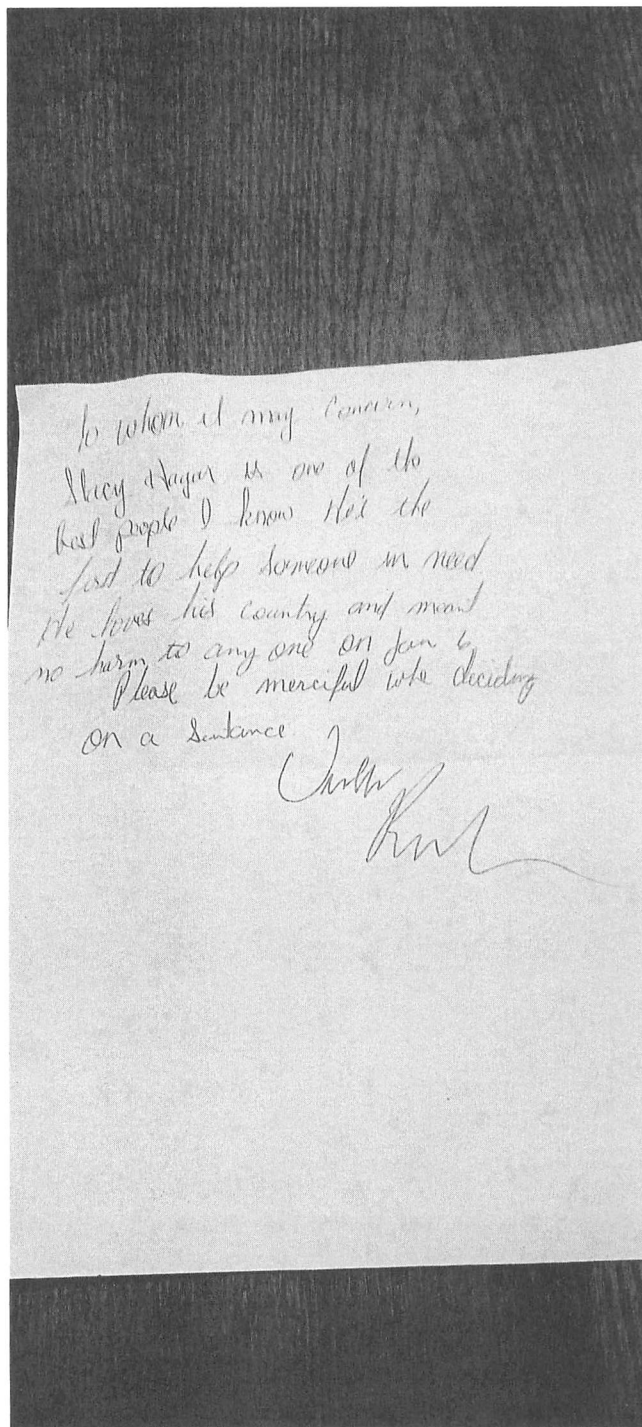 To whom it may Concern,
Stacy Hagar is one of the
best people I know He's the
first to help someone in need
He loves his country and meant
no harm to any one on Jan 6
Please be merciful whe deciding
on a Sentance.